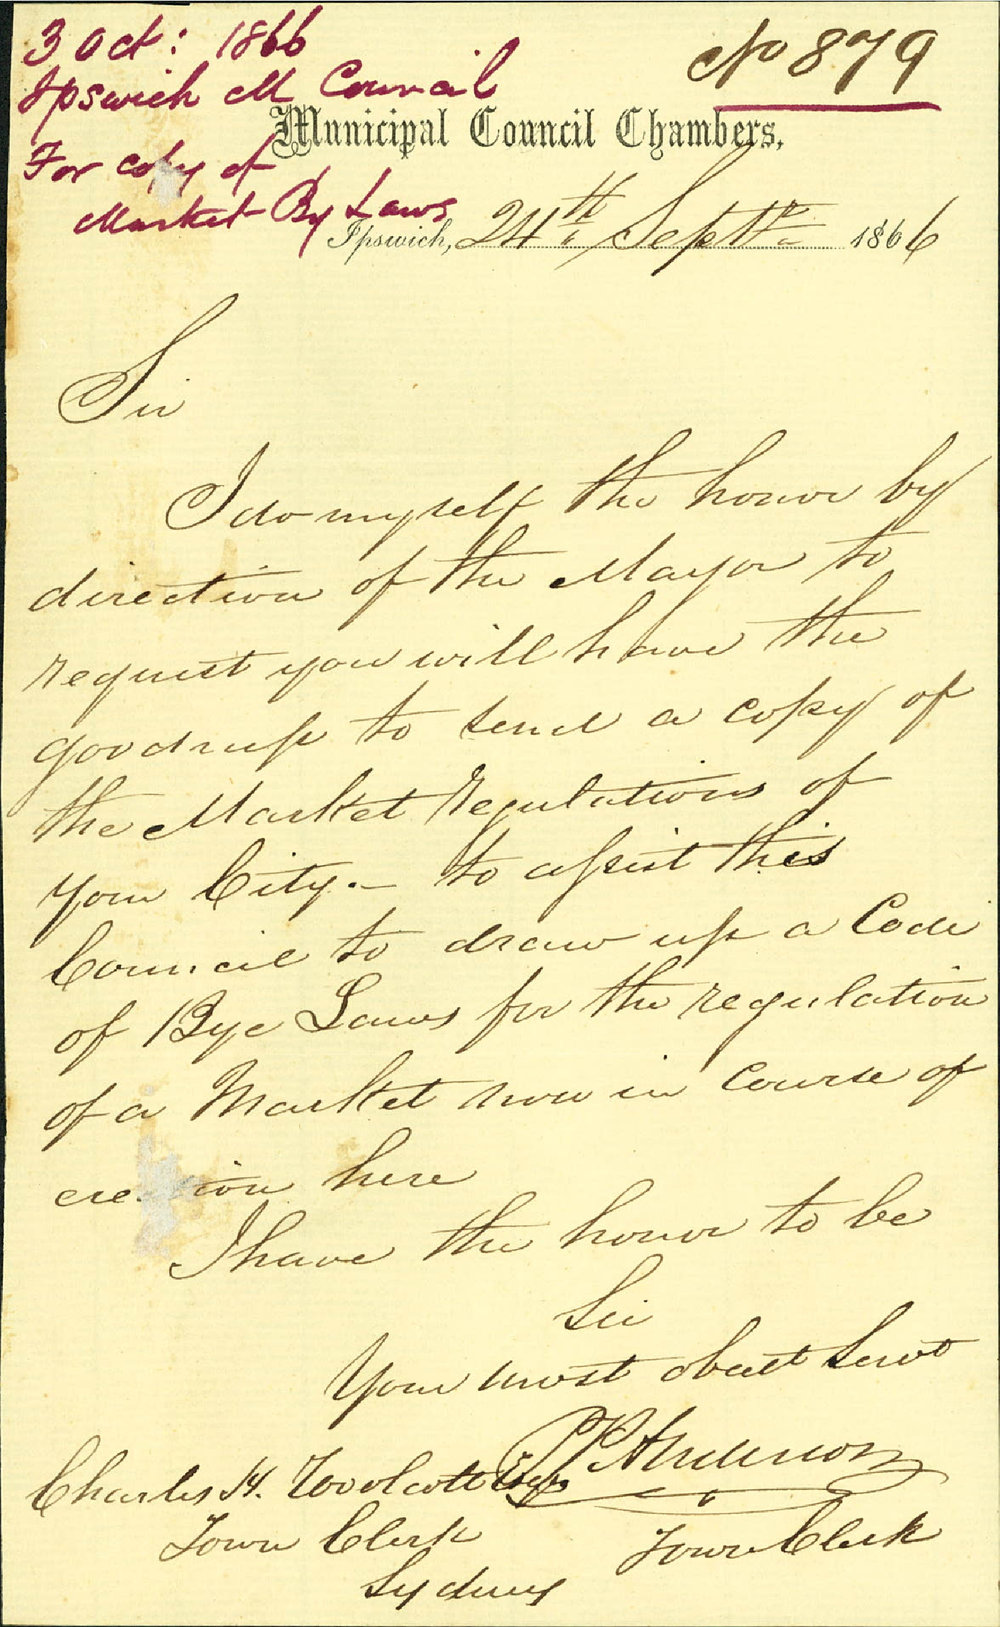 3 Oct: 1866
Ipswich M Council
For copy of
Market By Laws
No 879
Municipal Council Chambers,
Ipswich, 24th Septr 1866
Sir
I do myself the honor by
direction of the Mayor to
request you will have the
goodness to send a copy of
the Market regulations of
your City.- to assist this
Council to draw up a Code
of Bye Laws for the regulation
of a Market now in course of
erection here
I have the honor to be
Sir
Your most obedt Servt
Anderson
Town Clerk
Charles H. Woolcott Esqr
Town Clerk
Sydney